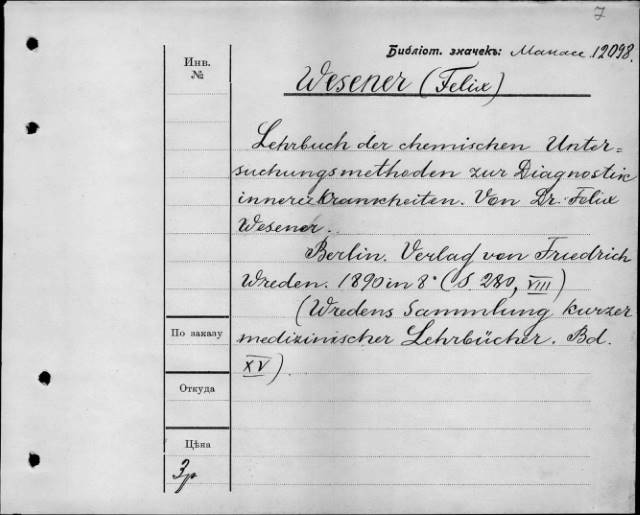 7
Библіот. значекъ: Манасс 12098.
Инв.
№
Wesener (Felix)
Lehrbuch der chemischen Unter=
suchungsmethoden zur Diagnostik
innerer Krankheiten. Von Dr. Felix
Wesener.
Berlin. Verlag von Friedrich
Wreden. 1890 in 8° (S. 280, VIII)
(Wredens Sammlung kurzer
medizinischer Lehrbücher. Bd.
XV).
По заказу
Откуда
Цѣна
3р